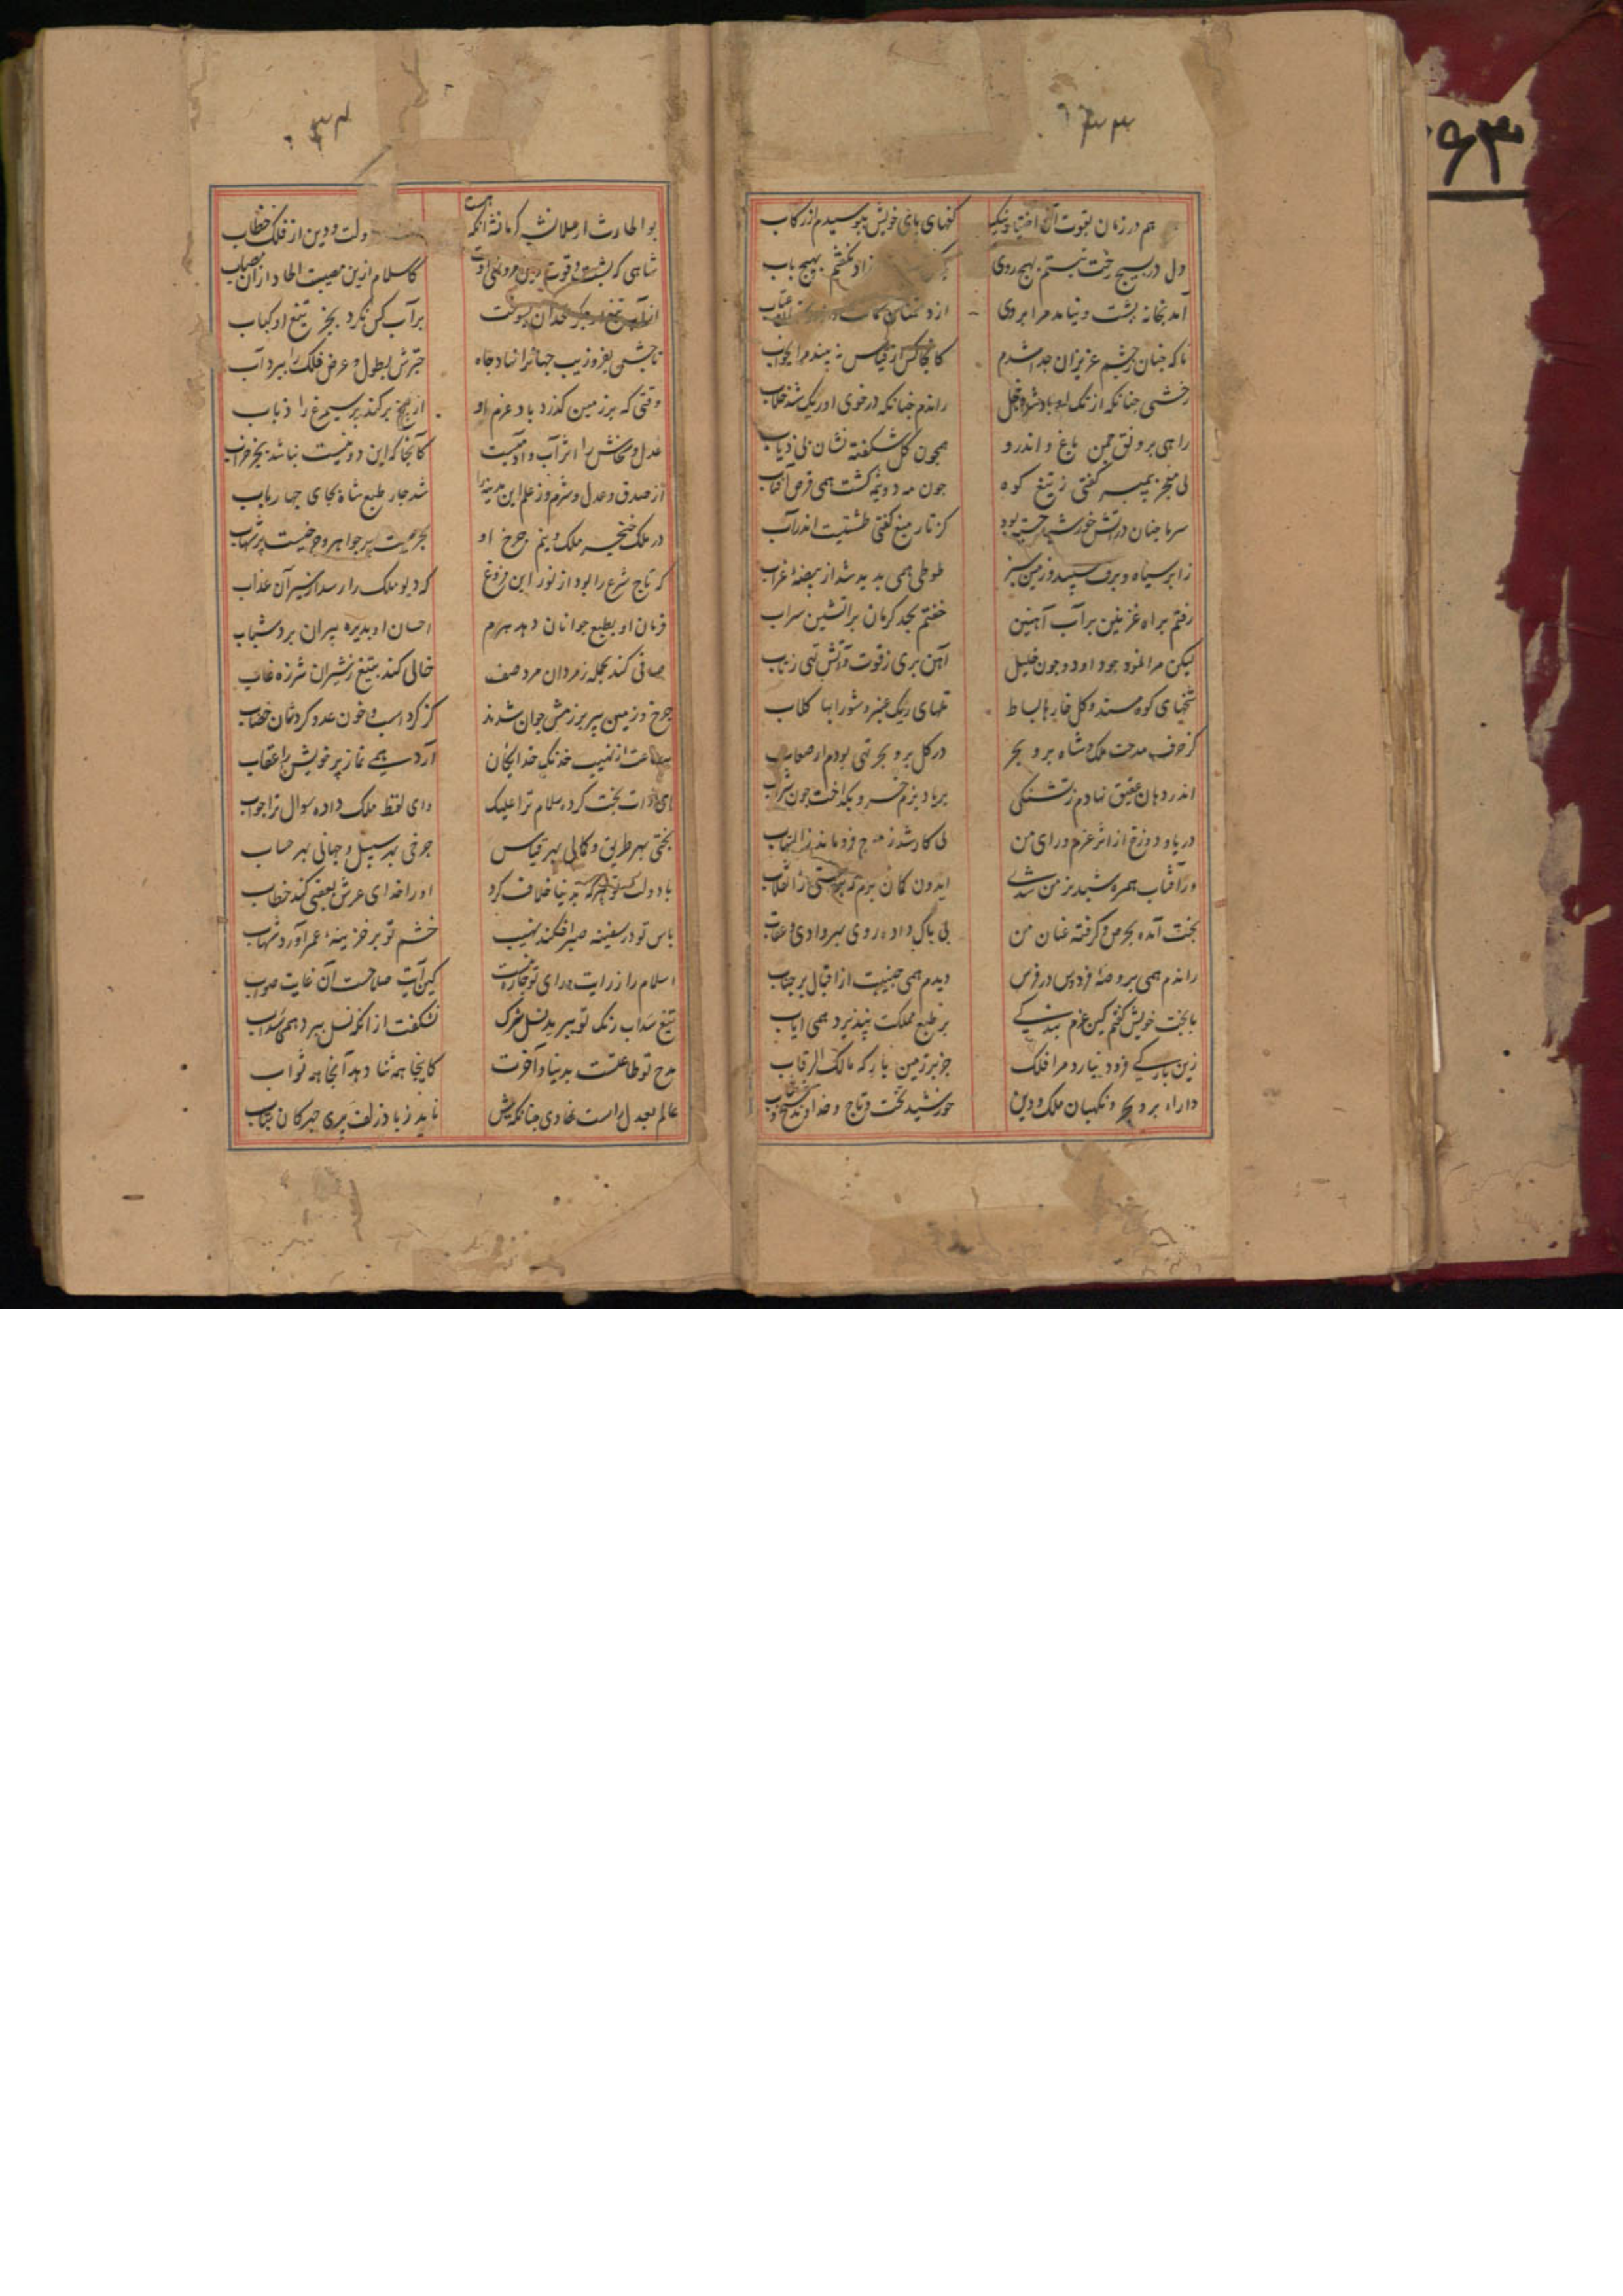 ۶۳
هم در زمان بقوت آن اختیار نیک کفهای بای خویش ببوسیدم از رکاب
دل در بسیج رخت نبستم بهیچ روی نکفتم بهیچ باب
آمد بخانه پشت و نیامد مرا بروی از دشمنان
ناکه جنان ز چشم عزیزان جدا شدم کانجا کس از قیاس نه بیند مرا بخواب
رخشی جنانکه از تک او باد شد خجل راندم جنانکه در خوی او ریک شد خلاب
راهی برونق جمن باغ و اندرو همجون کل شکفته نشان بی ذباب
بی مغجر بیمبر کفتی ز تیغ کوه جون مه دو نیمه کشت همی قرص آفتاب
سرما جنان در آتش خورشید جسته بود کز تار میغ کفتی طشتیست اندر آب
ز ابر سیاه و برف سپید و زمین سبز طوطی همی بدید شد از بیضهٔ غراب
رفتم براه غزنین بر آب آهنین خفتم بحد کرمان بر آتشین سراب
لیکن مرا نمود جو داود و جون خلیل آهن بری ز قوت و آتش تهی ز تاب
شخهای کوه مسند و کل خارها بساط تلهای ریک عنبر و شورابها کلاب
کز حرف مدحت ملک شاه بر و بحر در کل بر و بحر تهی بودم از صعاب
اندر دهان عقیق نهادم ز تشنکی بر یاد بزم خسرو بکداخت جون شراب
دریا و دوزخ از اثر عزم و رای من بی کار شد ز موج و فرو ماند ز التهاب
ور آفتاب همره شبدیز من شدی ایدون کمان برم که بجستی ز انقلاب
بختت آمده بحرص و کرفته عنان من بی باک داده روی بهر وادی و عقاب
راندم همی بروضهٔ فردوس در فرس دیدم همی جنیبت از اقبال بر جناب
با بخت خویش کفتم کین عزم بندکی بر طبع مملکت نپذیرد همی ایاب
زین بارکی فرود نیارد مرا فلک جز بر زمین بارکه مالک الرقاب
داراء بر و بحر و نکهبان ملک و دین خورشید تخت و تاج و خداوند شیخ و شاب
بو الحارث ارسلانشه کرمانشه آنکه هست دولت و دین از فلک خطاب
شاهی که پشت و قوت دین کاسلام ازین مصیبت الحاد از آن مصاب
از آب تیغ او جکر بسوخت بر آب کس نکرد بجز تیغ او کباب
تا جشن بفر و زیب جهانرا نهاد جاه جترش بطول و عرض فلک را ببرد آب
وقتی که بر زمین کذرد باد عزم او از بیخ بر کند پر سیمرغ را ذباب
عدل و سخاش را اثر آب و آدمیست کانجا که این دو نیست نباشد بجز خراب
از صدق و عدل و شرم و ز علم این مدینه را شد جار طبع شاه بجای جهار باب
در ملک خنجر ملک و بزم جرخ او بحریست پر جواهر و جرخیست پر شهاب
که تاج شرع را بود از نور این فروغ که دیو ملک را رسد از سیر آن عذاب
فرمان او بطبع جوانان دهد هرم احسان او بدیده پیران برد شباب
صافی کند بحمله ز مردان مرد صف خالی کند بتیغ ز شیران شرزه غاب
جرخ و زمین پیر برزمش جوان شدند کز کرد اسب و خون عدو کردشان خضاب
ساعت از نهیب خدنک خدایکان آرد همی نماز پر خویش را عقاب
ای ذات بخت کرده سلام ترا علیک وای لفظ ملک داده سوال ترا جواب
بختی بهر طریق و کمالی بهر قیاس جرخی بهر سبیل و جهانی بهر حساب
با دولت تو هر که بدنیا خلاف کرد او را خدای عرش بعقبی کند خطاب
باس تو در سفینه صبر افکند نهیب خشم تو بر خزینهٔ عمر آورد نهاب
اسلام را ز رایت و رای تو جاره نیست کین آیت صلاحست آن غایت صواب
تیغ سداب رنک تو ببرید نسل شرک نشکفت از آنکه نسل ببرد همی سداب
مدح تو طاعتست بدنیا و آخرت کاینجا همه ثنا دهد آنجا همه ثواب
عالم بعدل راست نهادی جنانکه بیش ناید ز باد زلف پری جهرکان بتاب